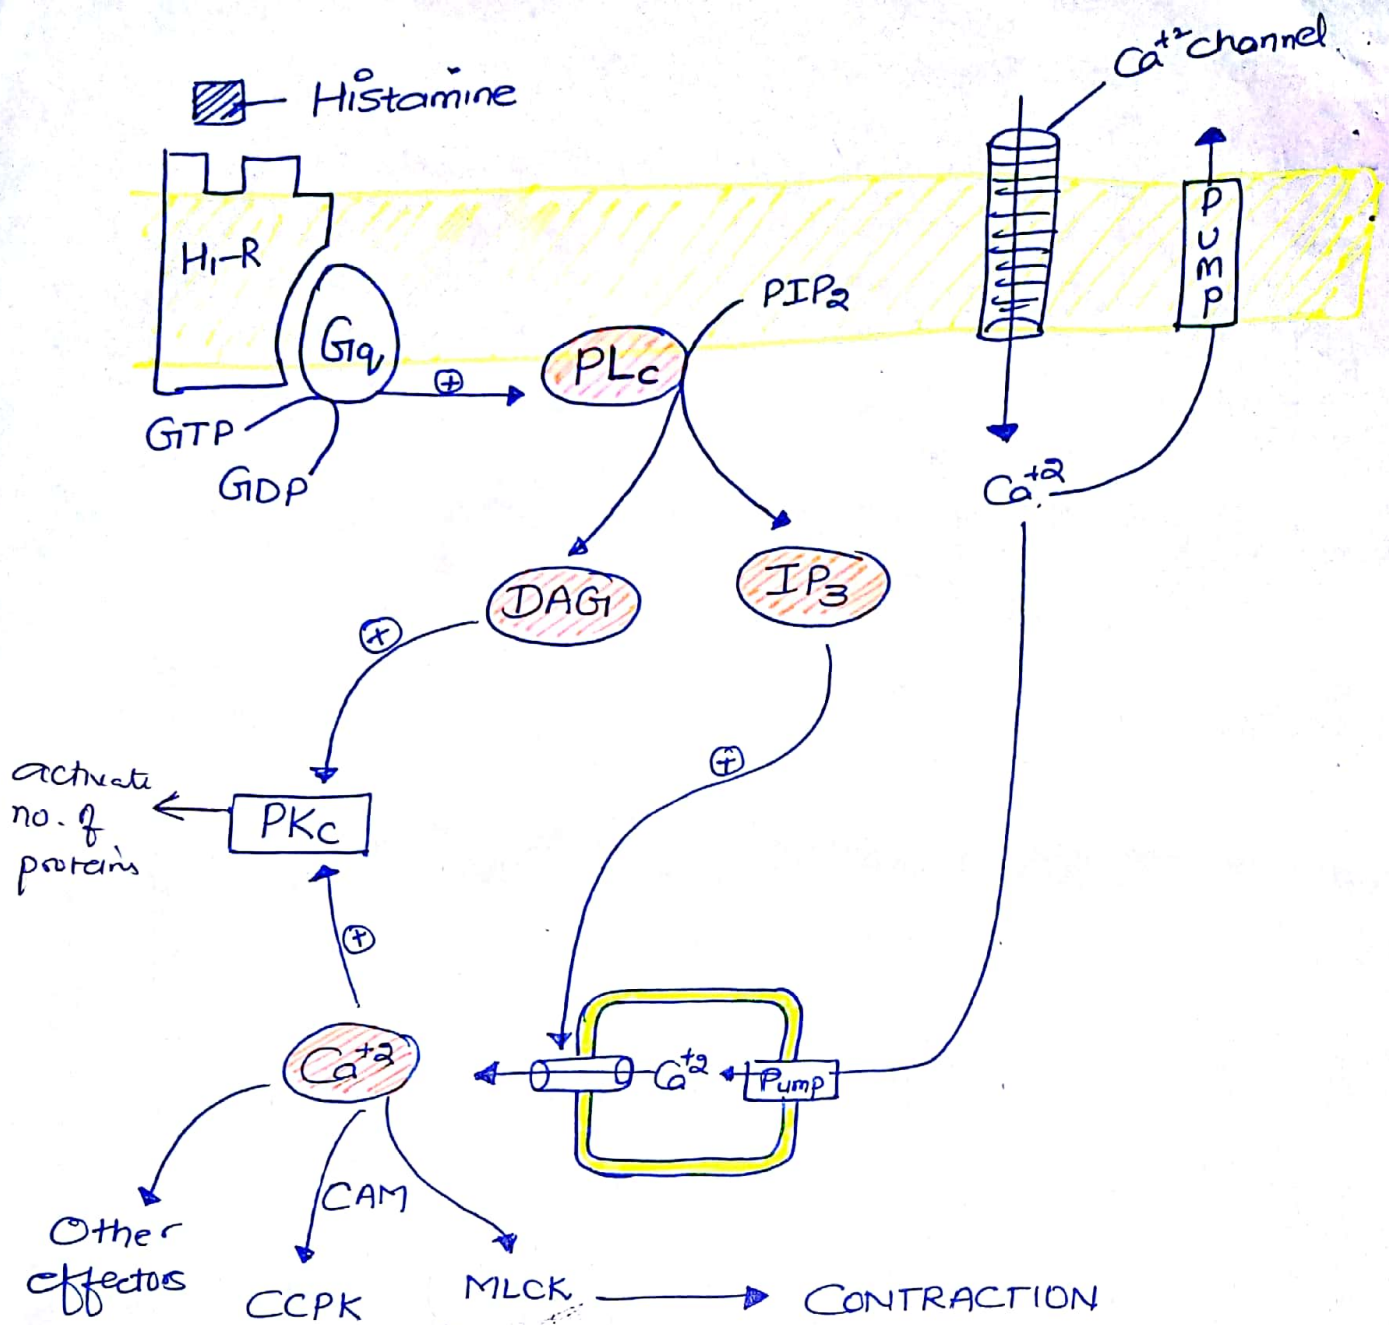 Ca+2 channel
Histamine
PUMP
H1-R
PIP2
Gq
+
PLc
GTP
GDP
Ca+2
DAG
IP3
+
+
activate
no. of
proteins
PKc
+
Ca+2
Ca+2
Pump
CAM
Other
effectors
CCPK
MLCK
CONTRACTION